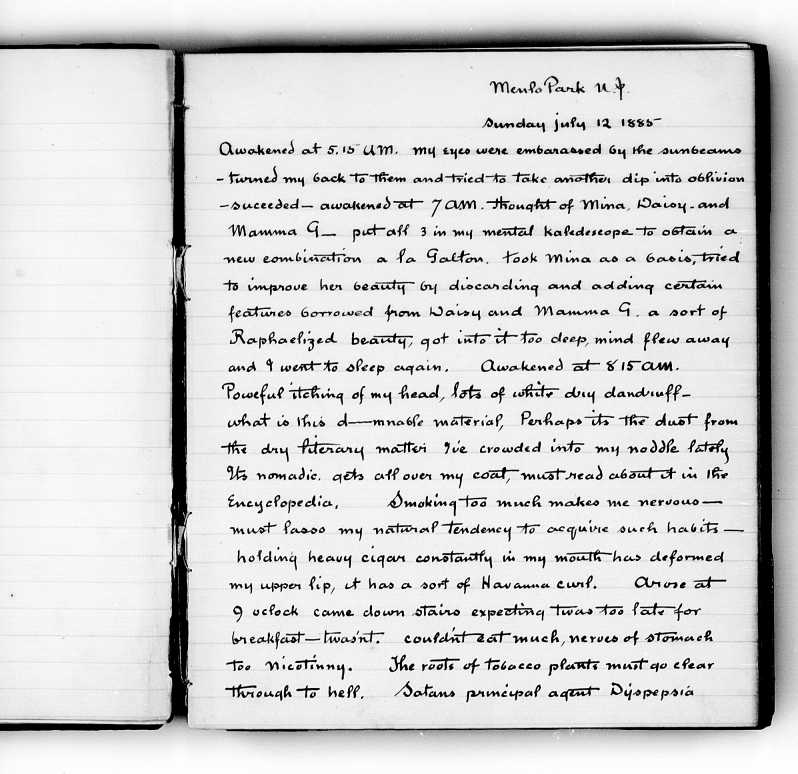 Menlo Park N.J.
Sunday July 12 1885
Awakened at 5.15 AM. My eyes were embarassed by the sunbeams
- turned my back to them and tried to take another dip into oblivion
- suceeded - awakened at 7 AM. thought of Mina, Daisy, and
Mamma G - put all 3 in my mental kaledescope to obtain a
new combination a la Galton. took Mina as a basis, tried
to improve her beauty by discarding and adding certain
features borrowed from Daisy and Mamma G. a sort of
Raphaelized beauty, got into it too deep, mind flew away
and I went to sleep again. Awakened at 8 15 AM.
Poweful itching of my head, lots of white dry dandruff -
what is this d—mnable material, Perhaps its the dust from
the dry literary matter I've crowded into my noddle lately
Its nomadic. gets all over my coat, must read about it in the
Encyclopedia. Smoking too much makes me nervous —
must lasso my natural tendency to acquire such habits —
holding heavy cigar constantly in my mouth has deformed
my upper lip, it has a sort of Havanna curl. Arose at
9 oclock came down stairs expecting twas too late for
breakfast — twasn't. couldn't eat much, nerves of stomach
too nicotinny. The roots of tobacco plants must go clear
through to hell. Satans principal agent Dyspepsia